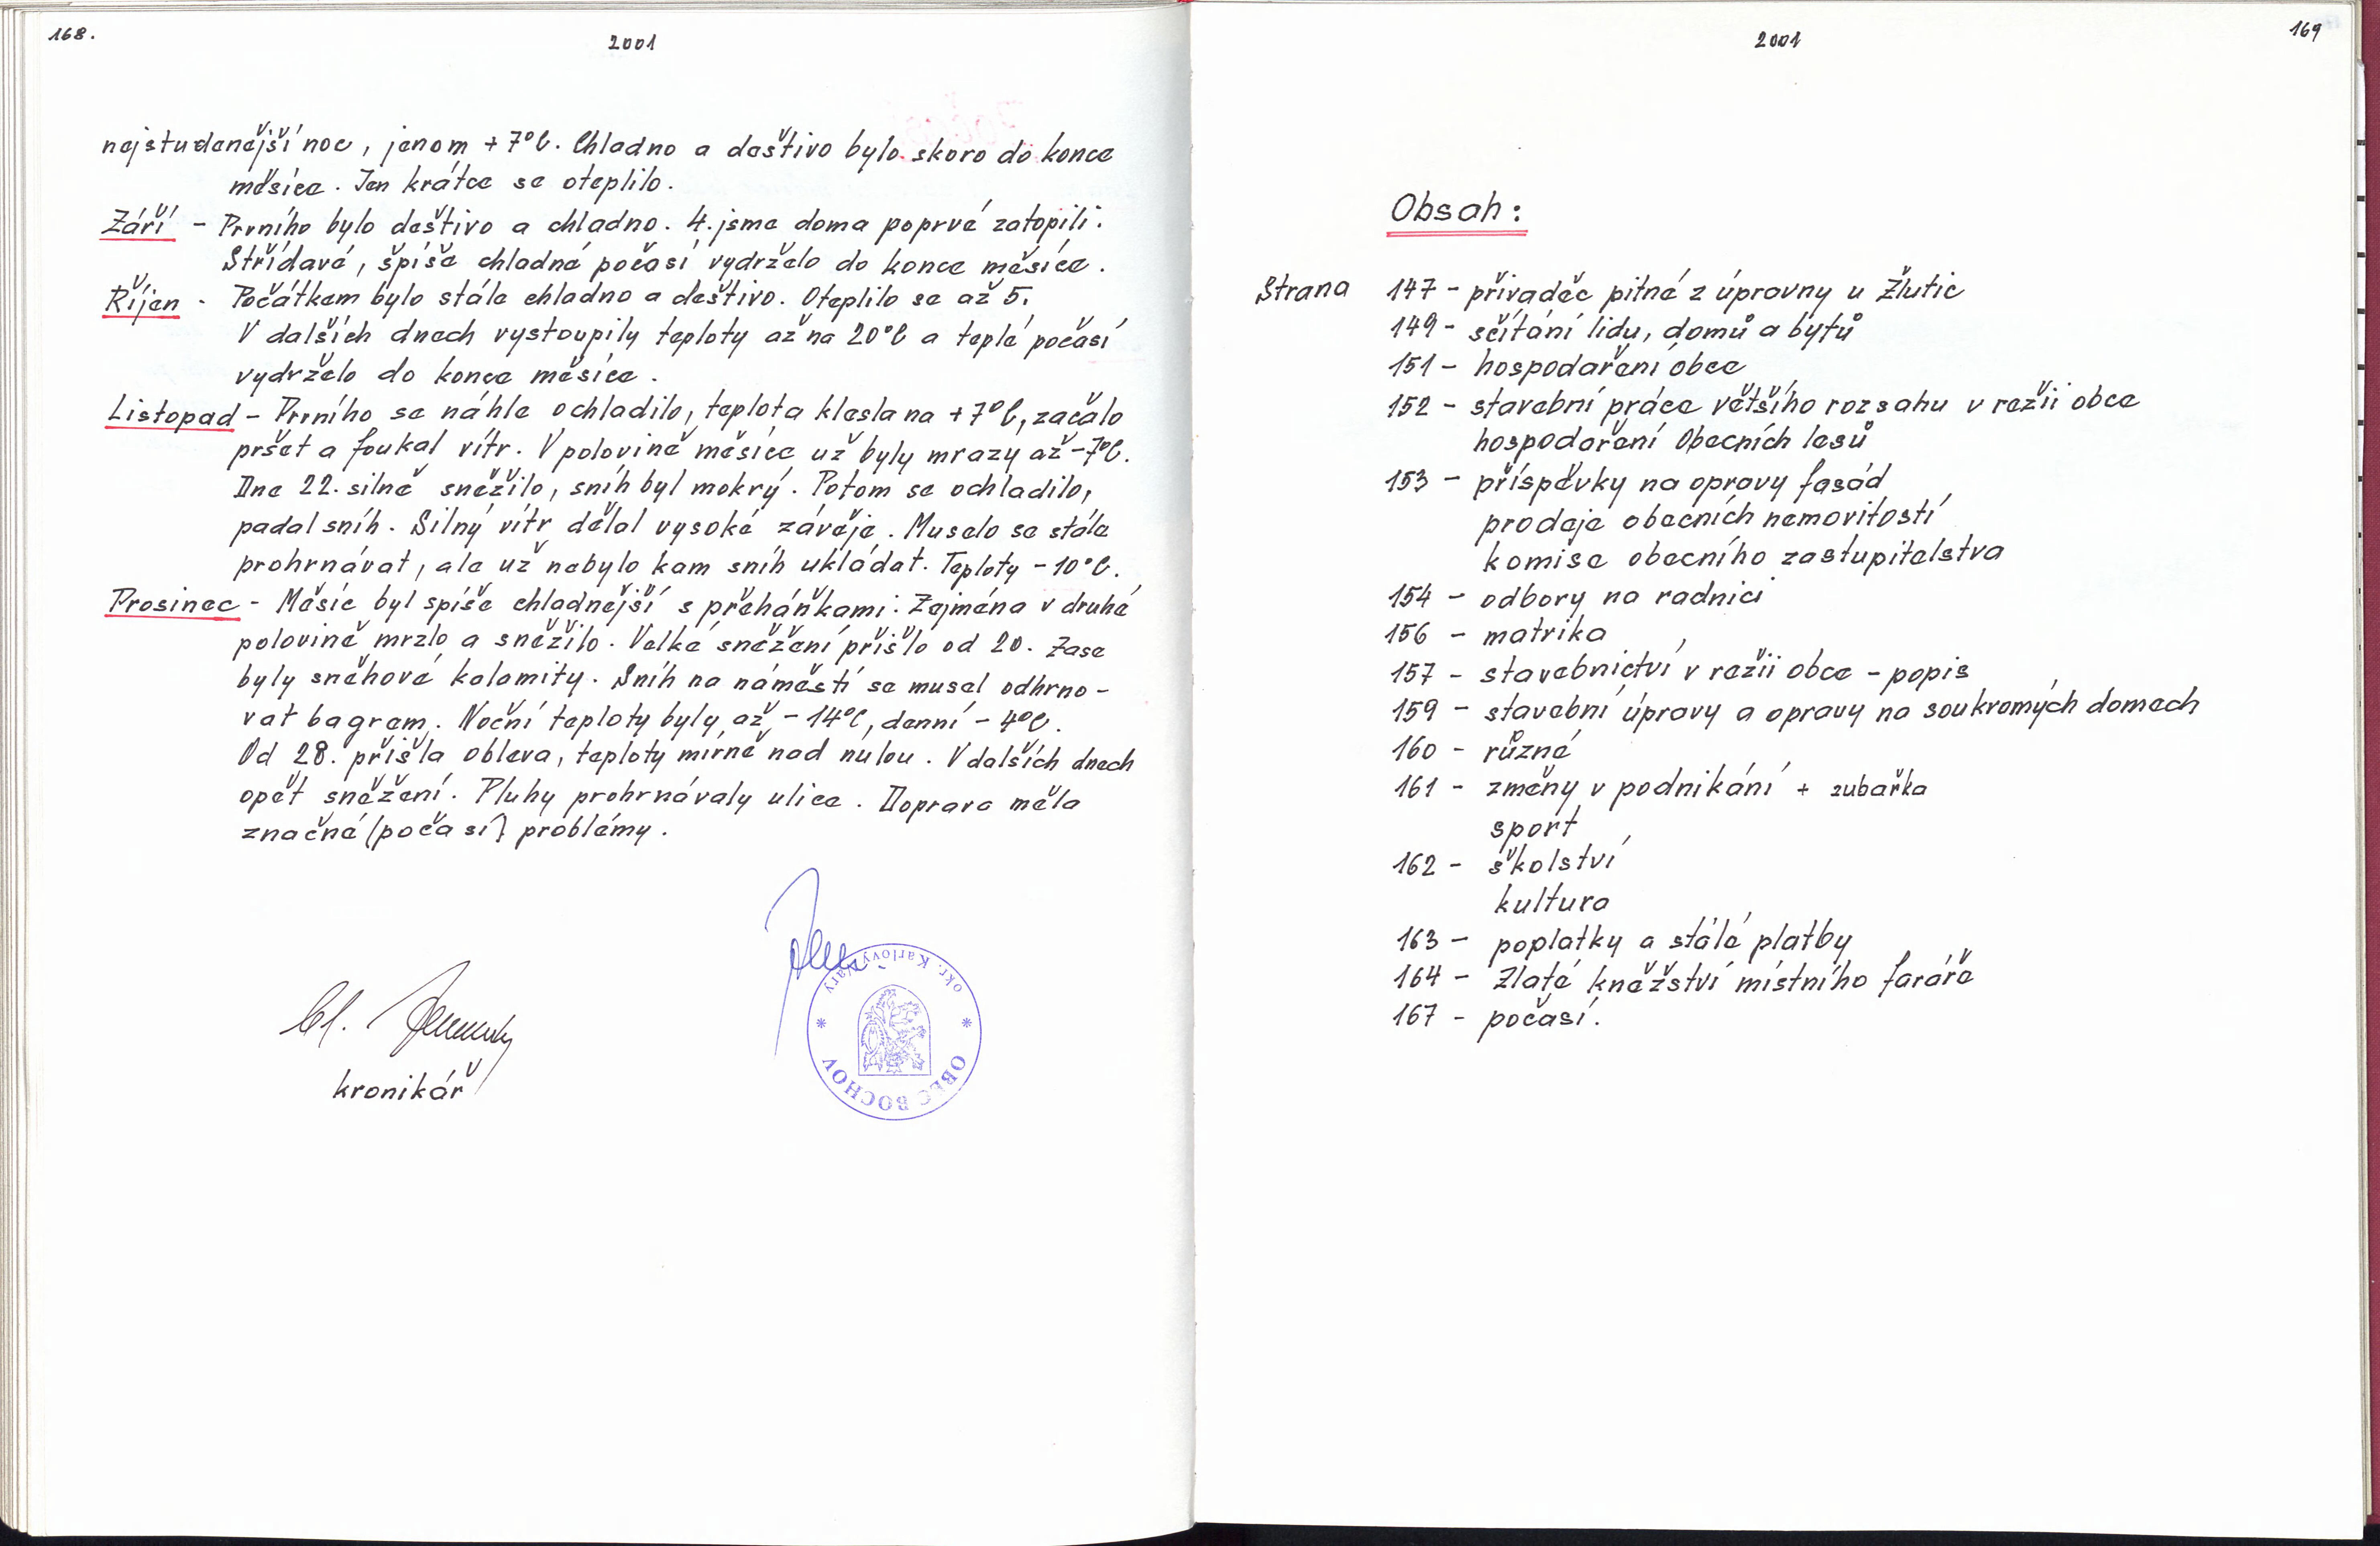 168.
2001
nejstudenější noc, jenom + 7°C. Chladno a deštivo bylo skoro do konce
měsíce. Jen krátce se oteplilo.
Září - Prvního bylo deštivo a chladno. 4. jsme doma poprvé zatopili.
Střídavé, spíše chladné počasí vydrželo do konce měsíce.
Říjen - Počátkem bylo stále chladno a deštivo. Oteplilo se až 5.
V dalších dnech vystoupily teploty až na 20°C a teplé počasí
vydrželo do konce měsíce.
Listopad - Prvního se náhle ochladilo, teplota klesla na + 7°C, začalo
pršet a foukal vítr. V polovině měsíce už byly mrazy až -7°C.
Dne 22. silně sněžilo, sníh byl mokrý. Potom se ochladilo,
padal sníh. Silný vítr dělal vysoké závěje. Muselo se stále
prohrnávat, ale už nebylo kam sníh ukládat. Teploty - 10°C.
Prosinec - Měsíc byl spíše chladnější s přeháňkami. Zejména v druhé
polovině mrzlo a sněžilo. Velké sněžení přišlo od 20. Zase
byly sněhové kalamity. Sníh na náměstí se musel odhrno-
vat bagrem. Noční teploty byly až - 14°C, denní - 4°C.
Od 28. přišla obleva, teploty mírně nad nulou. V dalších dnech
opět sněžení. Pluhy prohrnávaly ulice. Doprava měla
značné (počasí) problémy.
kronikář
okr. Karlovy Vary
* OBEC BOCHOV *
2001
169
Obsah:
Strana 147 - přivaděč pitné z úpravny u Žlutic
149 - sčítání lidu, domů a bytů
151 - hospodaření obce
152 - stavební práce většího rozsahu v režii obce
hospodaření Obecních lesů
153 - příspěvky na opravy fasád
prodeje obecních nemovitostí
komise obecního zastupitelstva
154 - odbory na radnici
156 - matrika
157 - stavebnictví v režii obce - popis
159 - stavební úpravy a opravy na soukromých domech
160 - různé
161 - změny v podnikání + zubařka
sport
162 - školství
kultura
163 - poplatky a stálé platby
164 - Zlaté kněžství místního faráře
167 - počasí.